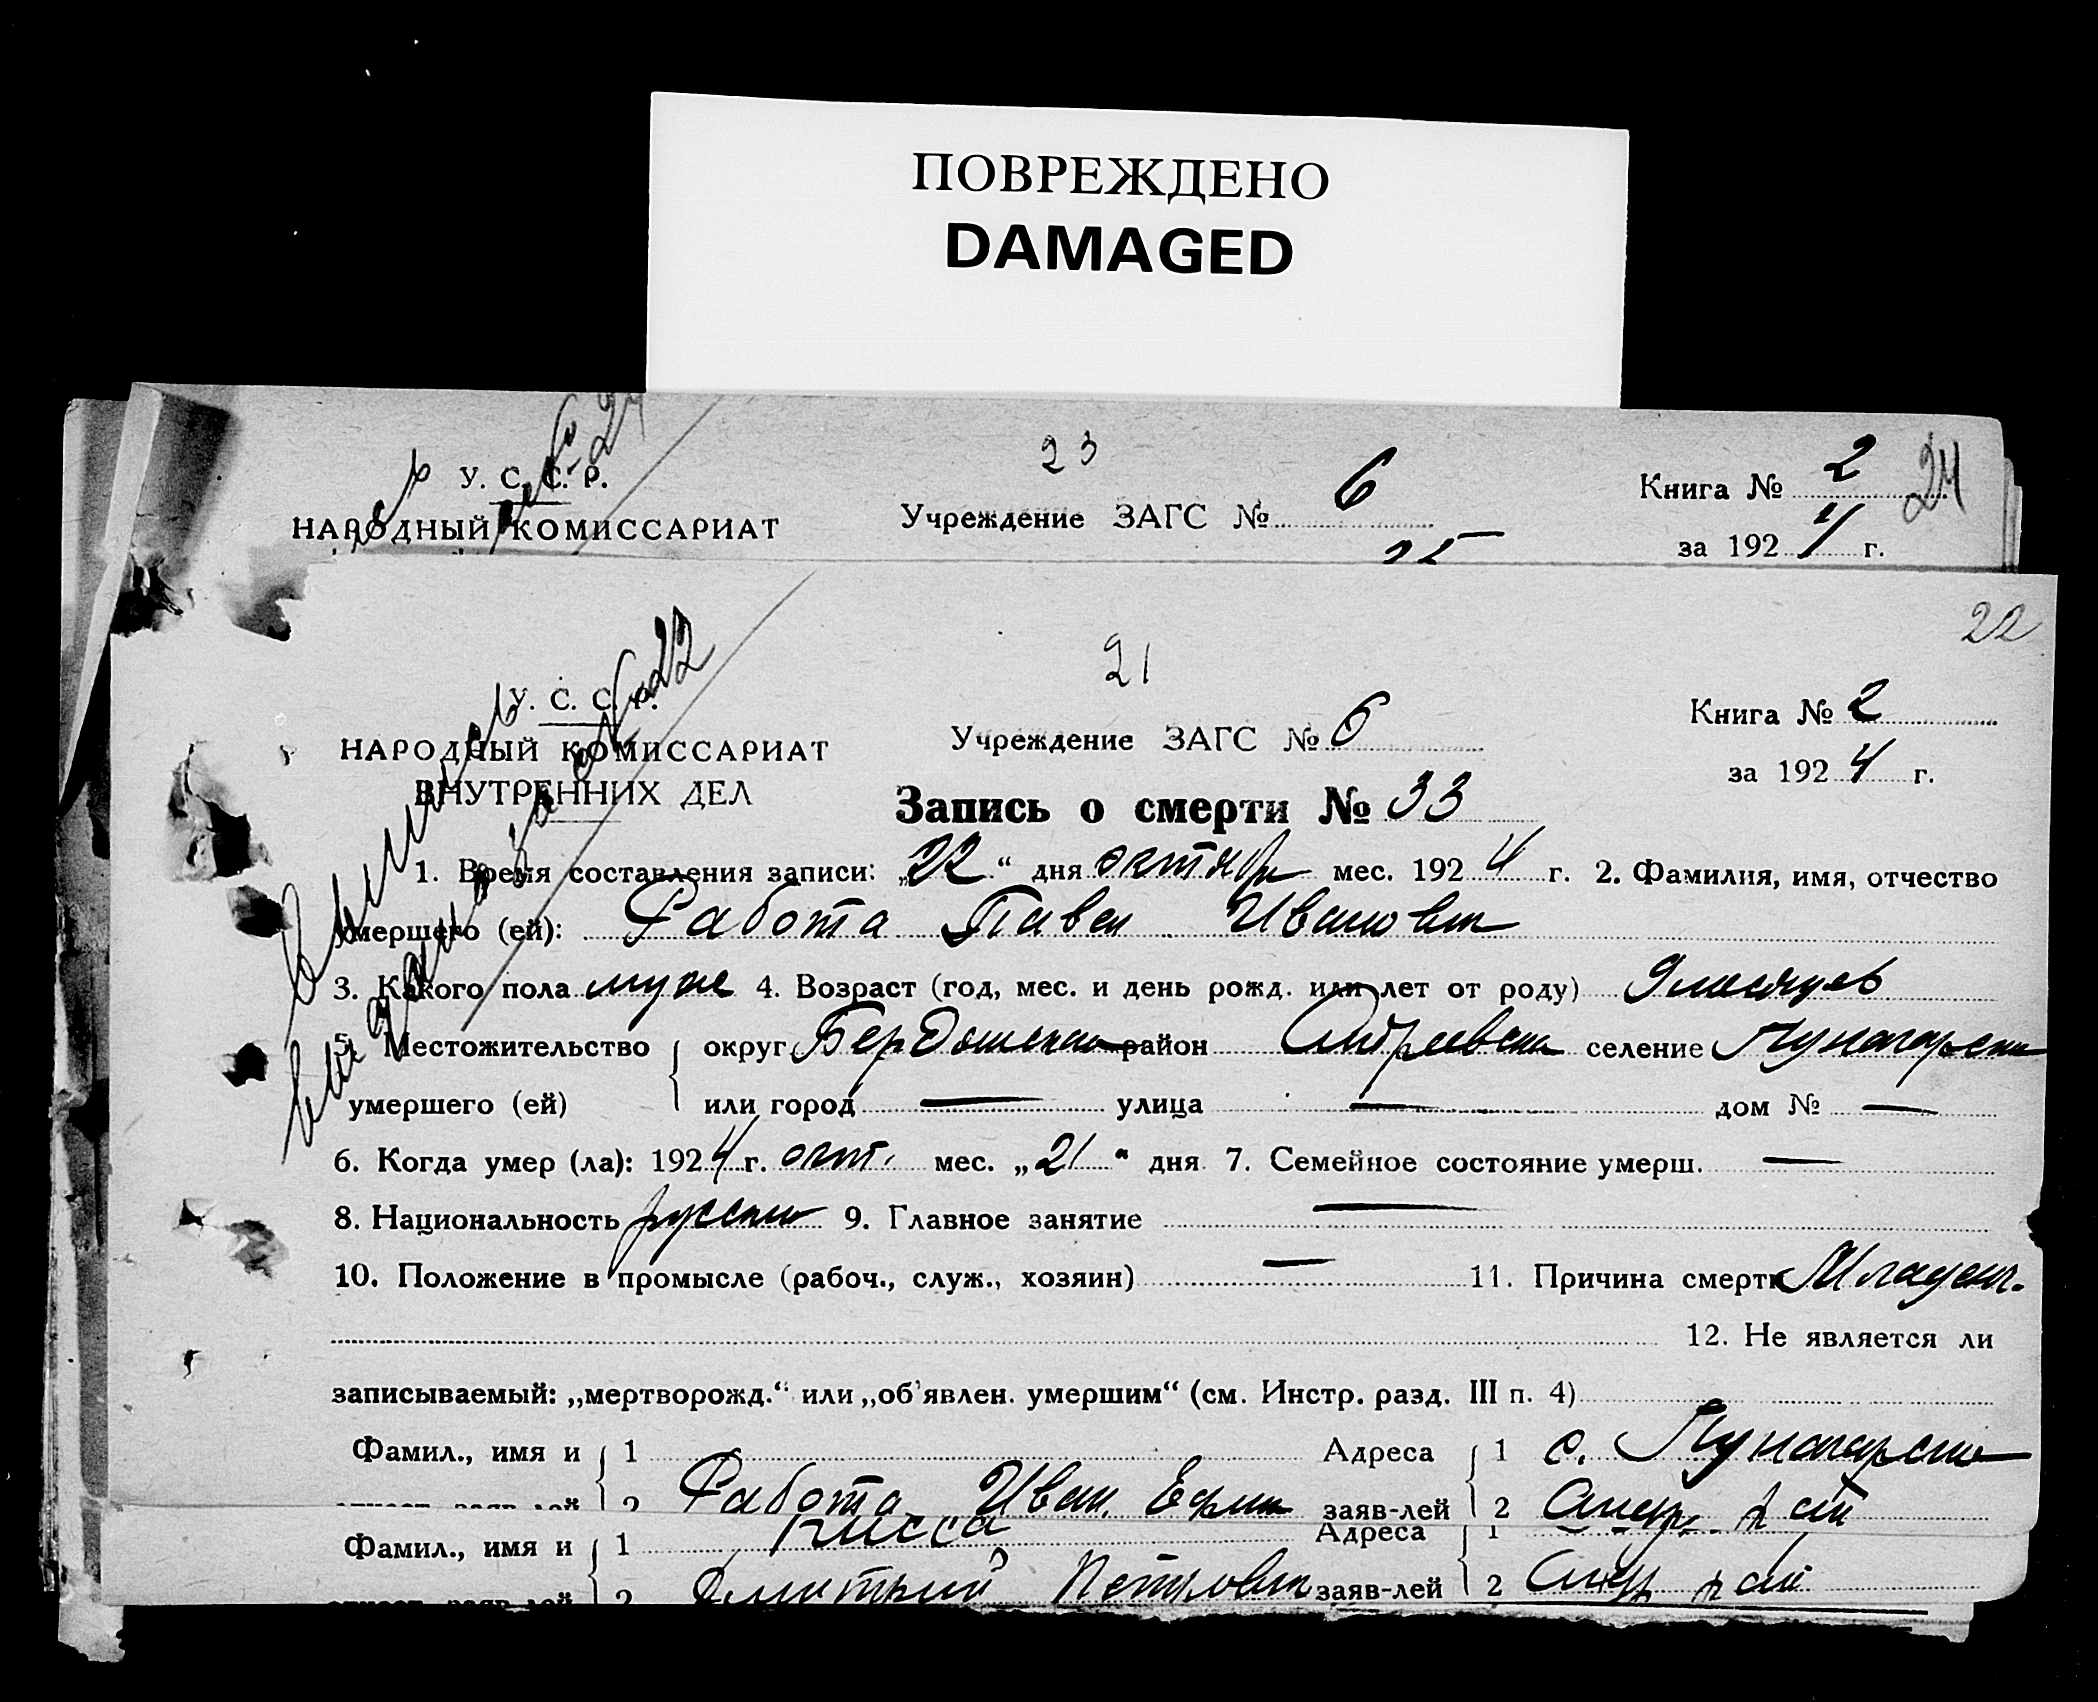 ПОВРЕЖДЕНО
DAMAGED
23
24
У. С. С. Р.
НАРОДНЫЙ КОМИССАРИАТ
Учреждение ЗАГС № 6
Книга № 2
за 1924 г.
25
22
21
У. С. С. Р.
НАРОДНЫЙ КОМИССАРИАТ
ВНУТРЕННИХ ДЕЛ
Учреждение ЗАГС № 6
Книга № 2
за 1924 г.
Запись о смерти № 33
1. Время составления записи: „22“ дня октябр мес. 1924 г. 2. Фамилия, имя, отчество
умершего (ей): Работа Павел Иванович
3. Какого пола муж 4. Возраст (год, мес. и день рожд. или лет от роду) 9 месяцев
5. Местожительство округ Бердянский район Андреевский селение
умершего (ей) или город — улица — дом № —
6. Когда умер (ла): 1924 г. окт. мес. „21“ дня 7. Семейное состояние умерш. —
8. Национальность русский 9. Главное занятие —
10. Положение в промысле (рабоч., служ., хозяин) — 11. Причина смерти Младенч.
12. Не является ли
записываемый: „мертворожд.“ или „об'явлен. умершим“ (см. Инстр. разд. III п. 4)
Фамил., имя и 1 Адреса 1 с.
2 Работа Иван Ефим заяв-лей 2 Андр. р
Фамил., имя и 1 Адреса 1
2 Дмитрий Петрович заяв-лей 2 Андр р